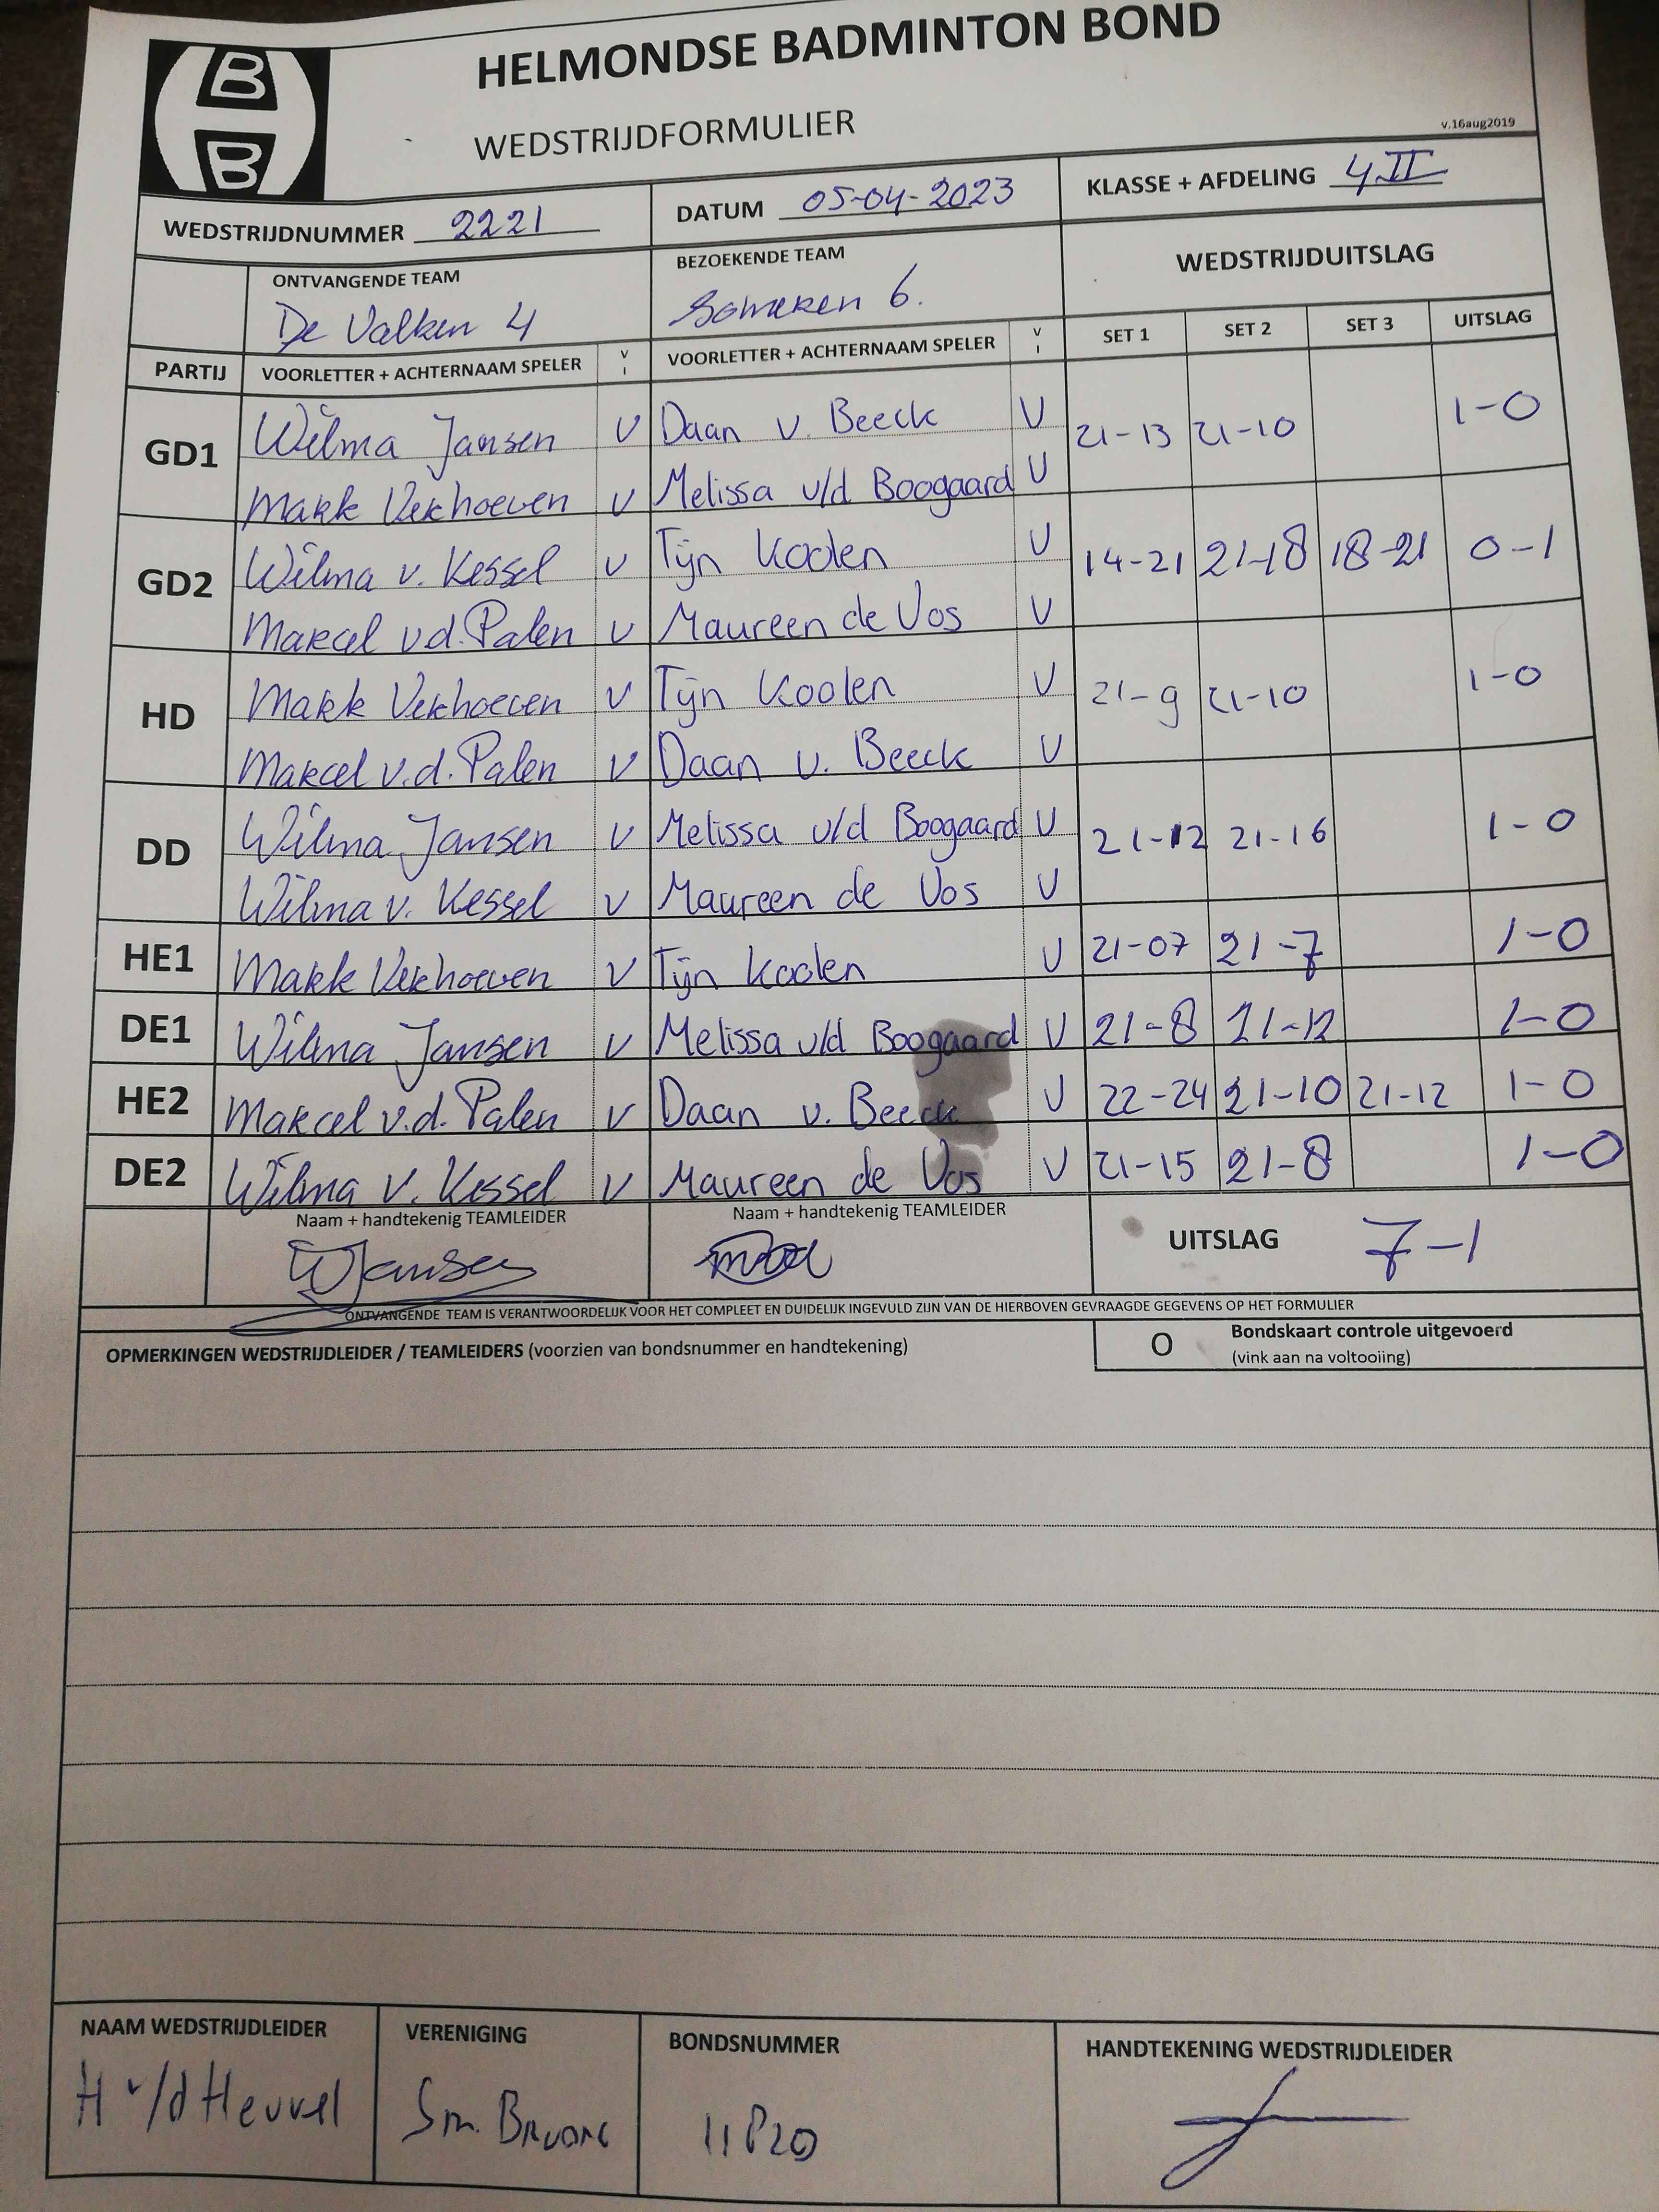 B
B
HELMONDSE BADMINTON BOND
WEDSTRIJDFORMULIER
v.16aug2019
WEDSTRIJDNUMMER 2221 DATUM 05-04-2023 KLASSE + AFDELING 4 II
ONTVANGENDE TEAM BEZOEKENDE TEAM WEDSTRIJDUITSLAG
De Valken 4 Someren 6.
PARTIJ VOORLETTER + ACHTERNAAM SPELER V I VOORLETTER + ACHTERNAAM SPELER V I SET 1 SET 2 SET 3 UITSLAG
GD1 Wilma Jansen V Daan v. Beeck V 21-13 21-10 1-0
Mark Verhoeven V Melissa v/d Boogaard V
GD2 Wilma v. Kessel V Tijn Koolen V 14-21 21-18 18-21 0-1
Marcel v.d. Palen V Maureen de Vos V
HD Mark Verhoeven V Tijn Koolen V 21-9 21-10 1-0
Marcel v.d. Palen V Daan v. Beeck V
DD Wilma Jansen V Melissa v/d Boogaard V 21-12 21-16 1-0
Wilma v. Kessel V Maureen de Vos V
HE1 Mark Verhoeven V Tijn Koolen V 21-07 21-7 1-0
DE1 Wilma Jansen V Melissa v/d Boogaard V 21-8 21-12 1-0
HE2 Marcel v.d. Palen V Daan v. Beeck V 22-24 21-10 21-12 1-0
DE2 Wilma v. Kessel V Maureen de Vos V 21-15 21-8 1-0
Naam + handtekenig TEAMLEIDER Naam + handtekenig TEAMLEIDER
WJansen UITSLAG 7-1
ONTVANGENDE TEAM IS VERANTWOORDELIJK VOOR HET COMPLEET EN DUIDELIJK INGEVULD ZIJN VAN DE HIERBOVEN GEVRAAGDE GEGEVENS OP HET FORMULIER
OPMERKINGEN WEDSTRIJDLEIDER / TEAMLEIDERS (voorzien van bondsnummer en handtekening) O Bondskaart controle uitgevoerd
(vink aan na voltooiing)
NAAM WEDSTRIJDLEIDER VERENIGING BONDSNUMMER HANDTEKENING WEDSTRIJDLEIDER
H v/d Heuvel Sm. 11820